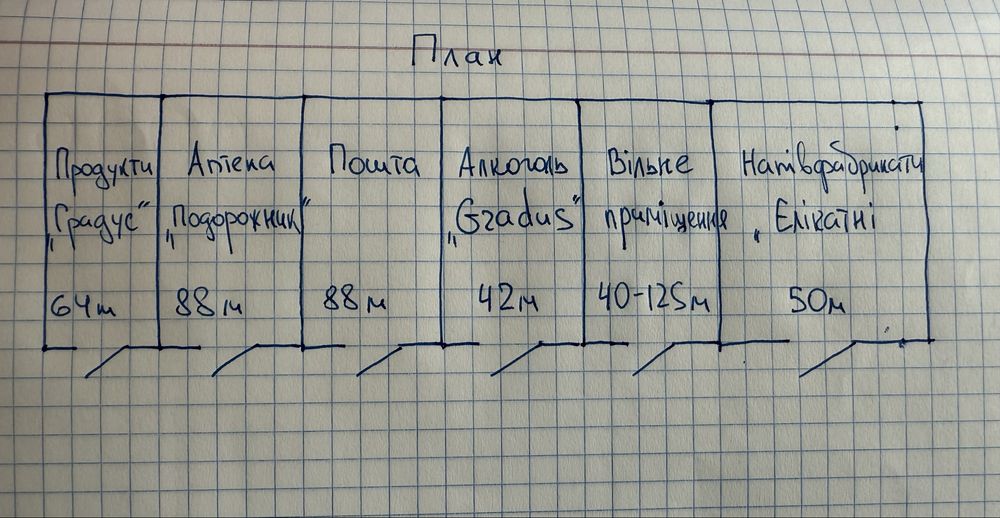 План
Продукти
„Градус“
64м
Аптека
„Подорожник“
88м
Пошта
88м
Алкоголь
„Gradus“
42м
Вільне
приміщення
40-125м
Напівфабрикати
„Елікатні
50м